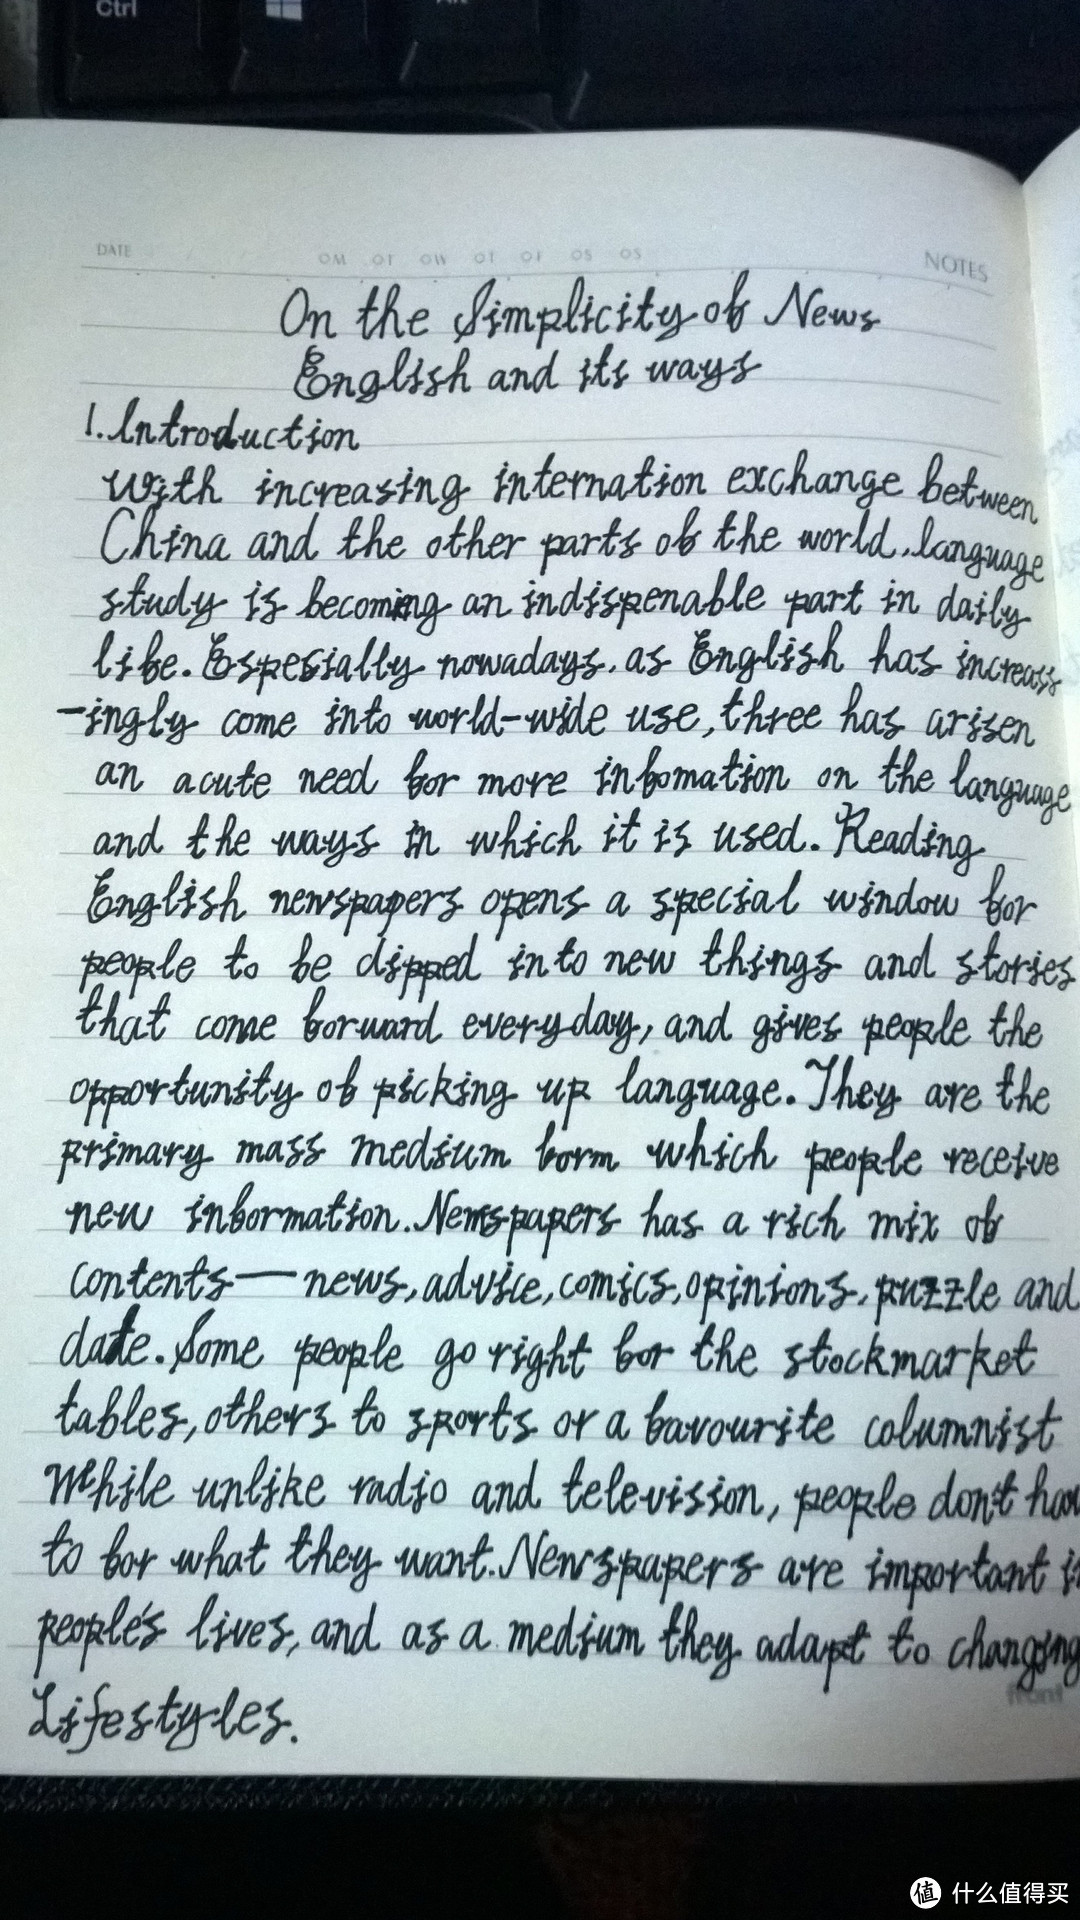 Ctrl
Alt
DATE
MO TO WO TO TO SO SO
NOTES
On the Simplicity of News
English and its ways
1. Introduction
With increasing internation exchange between
China and the other parts of the world, language
study is becoming an indispenable part in daily
life. Especially nowadays, as English has increas
-ingly come into world-wide use, three has arisen
an acute need for more infomation on the language
and the ways in which it is used. Reading
English newspapers opens a special window for
people to be dipped into new things and stories
that come forward everyday, and gives people the
opportunity of picking up language. They are the
primary mass medium form which people receive
new information. Newspapers has a rich mix of
contents — news, advice, comics, opinions, puzzle and
date. Some people go right for the stockmarket
tables, others to sports or a favourite columnist
While unlike radio and television, people don't hav
to for what they want. Newspapers are important i
people's lives, and as a medium they adapt to changing
Lifestyles.
front
值 什么值得买